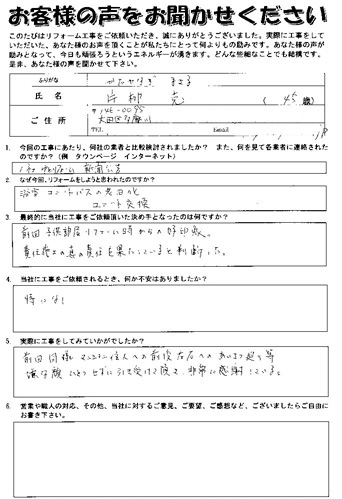 お客様の声をお聞かせください
このたびはリフォーム工事をご依頼いただき、誠にありがとうございました。実際に工事をして
いただいた、あなた様のお声を頂くことが私たちにとって何よりもの励みです。あなた様の声が
励みとなって、今日も頑張ろうというエネルギーが湧きます。どんな些細なことでも結構です。
是非、あなた様の声を聞かせて下さい。
ふりがな
氏 名 片柳 ( 45 歳)
ご 住 所 〒146-0095
大田区多摩川
TEL Email
1. 今回の工事にあたり、何社の業者と比較検討されましたか？ また、何を見て各業者に連絡された
のですか？（例 タウンページ インターネット）
2. なぜ今回、リフォームをしようと思われたのですか？
浴室 ユニットバスの老朽化
ユニット交換
3. 最終的に当社に工事をご依頼頂いた決め手となったのは何ですか？
前回子供部屋リフォーム時からの好印象。
責任施工の真の責任を果たしていると判断した。
4. 当社に工事をご依頼されるとき、何か不安はありましたか？
特になし
5. 実際に工事をしてみていかがでしたか？
前回同様 マンション住人への前後左右へのあいさつ廻り等
嫌な顔ひとつせずに引き受けて頂き、非常に感謝している。
6. 営業や職人の対応、その他、当社に対するご意見、ご要望、ご感想など、ございましたらご自由に
お書き下さい。